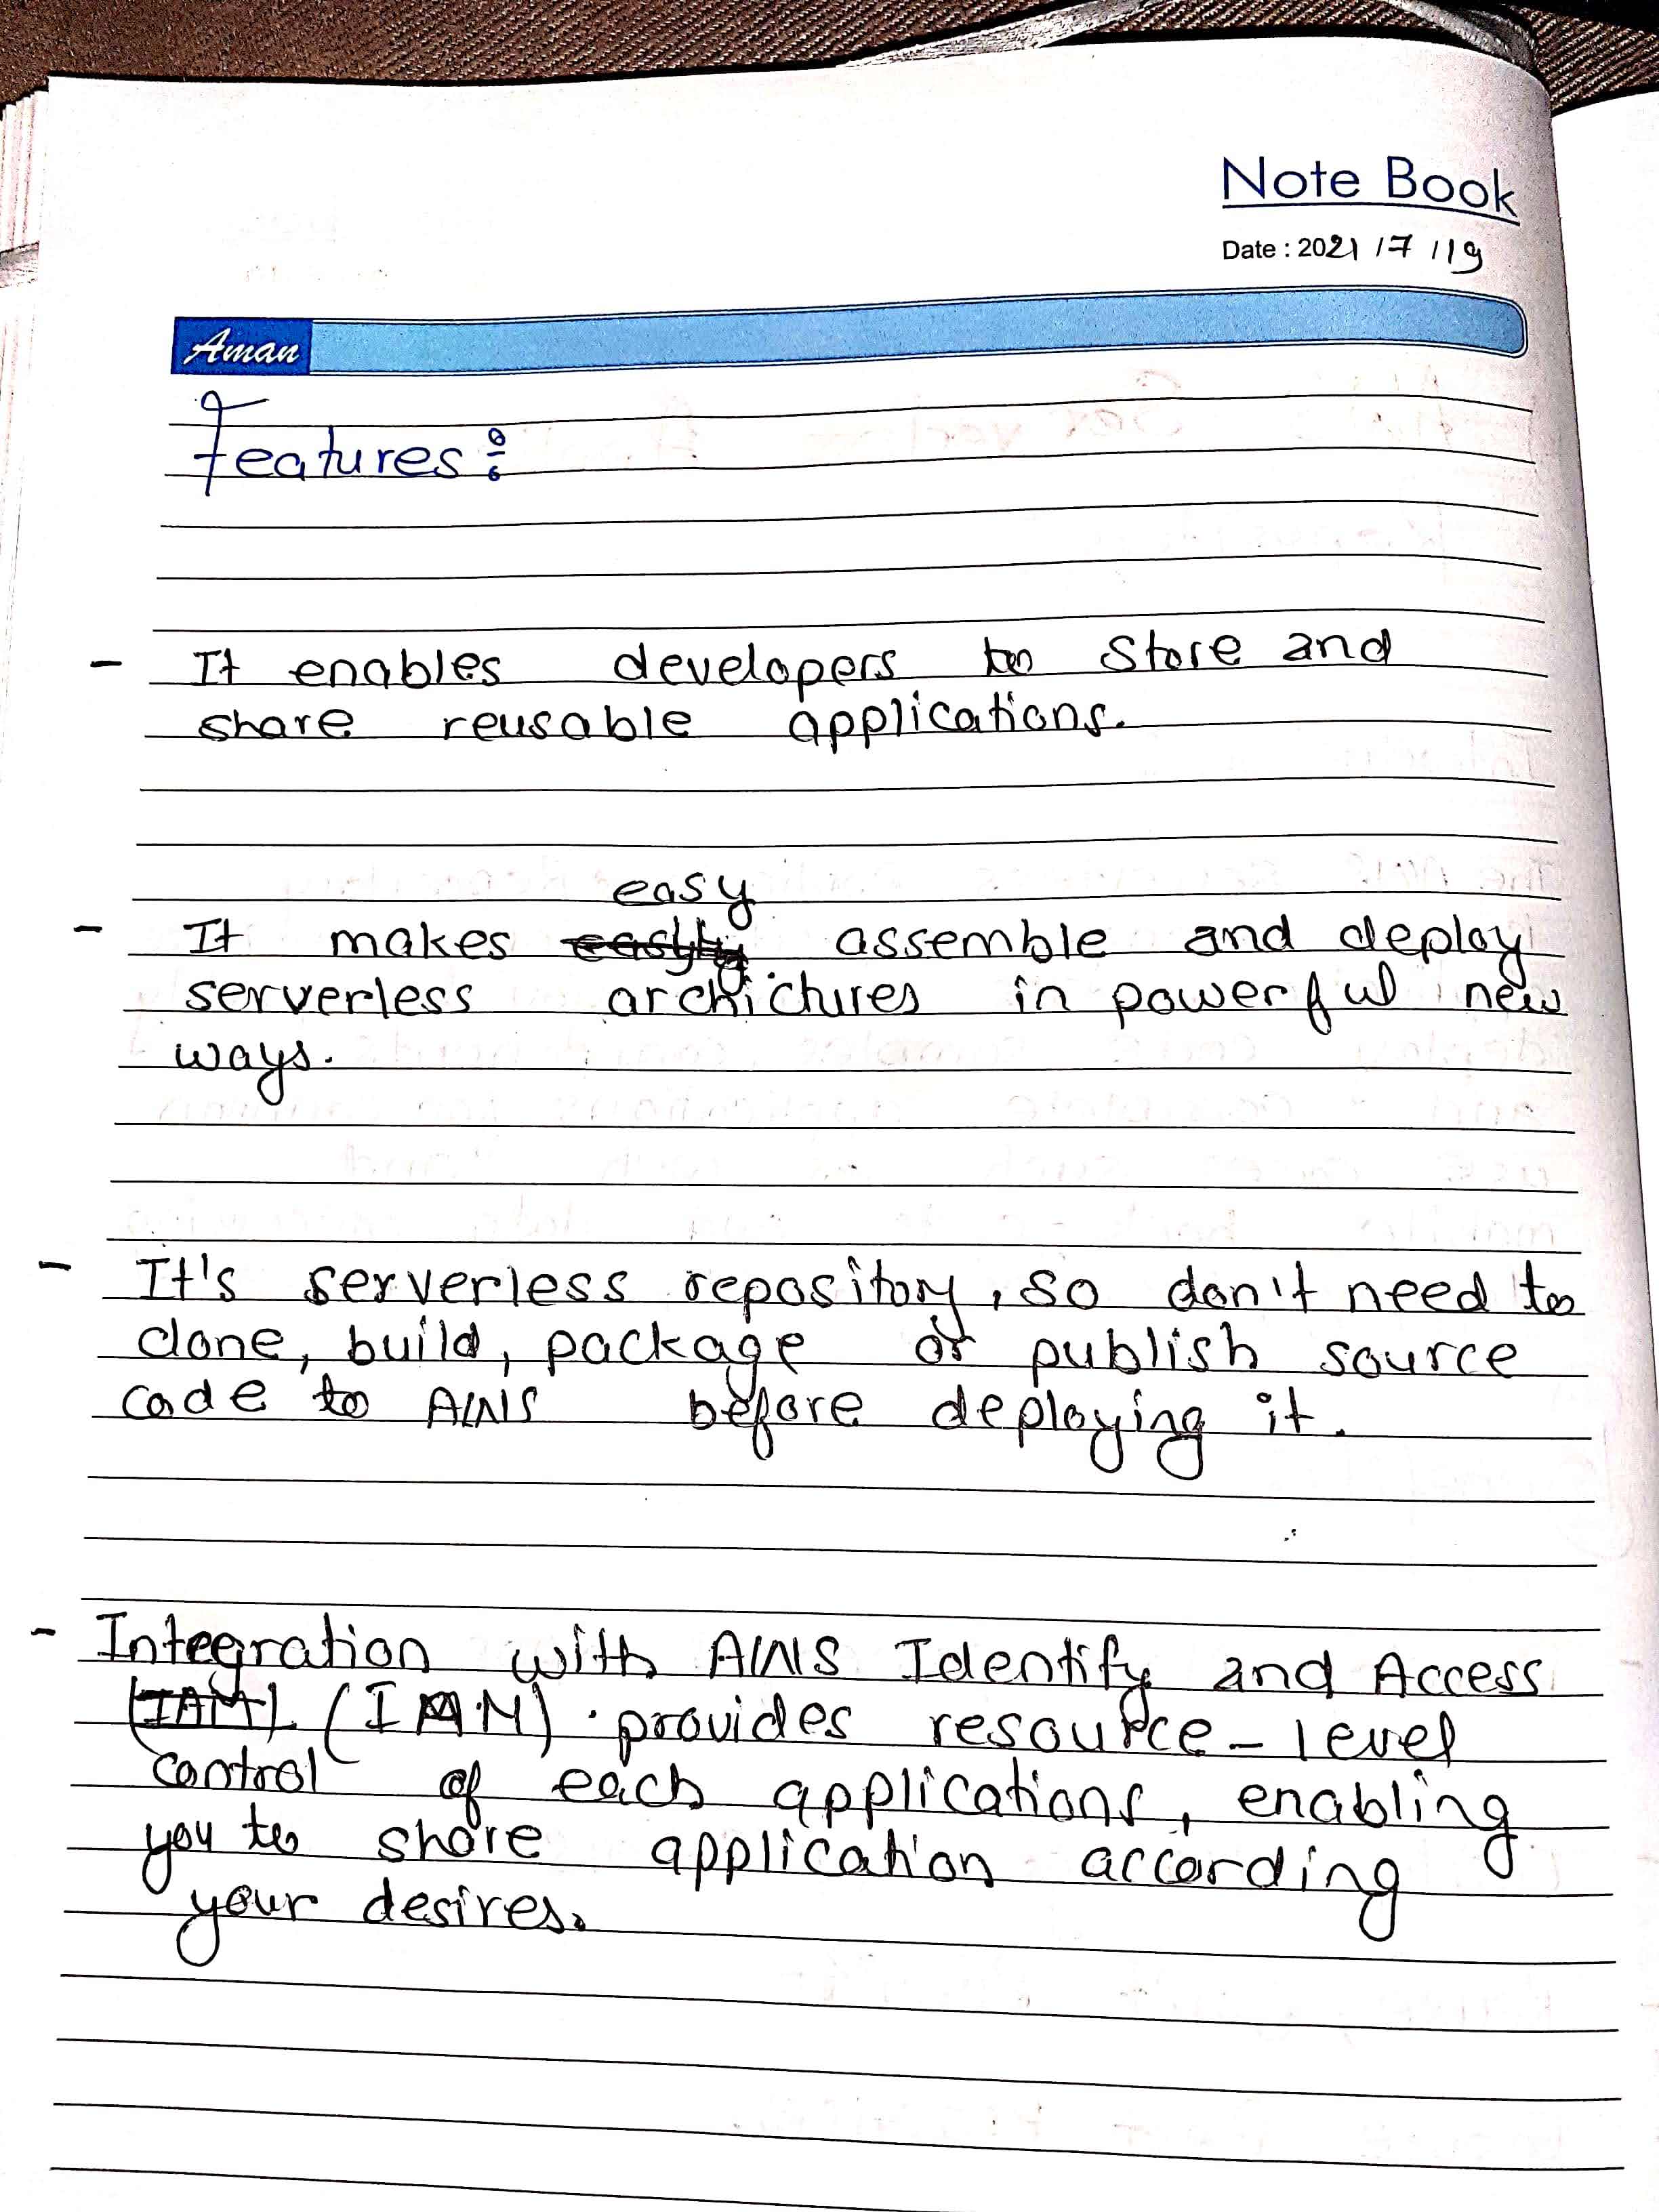 Note Book
Date : 2021 /7 /19
Aman
Features:
- It enables developers to store and
share reusable applications.
easy
- It makes easily assemble and deploy
serverless archictures in powerful new
ways.
- It's serverless repository, so don't need to
clone, build, package or publish source
code to AWS before deploying it.
- Integration with AWS Identify and Access
(IAM) (IAM) provides resource-level
control of each applications, enabling
you to share application according
your desires.